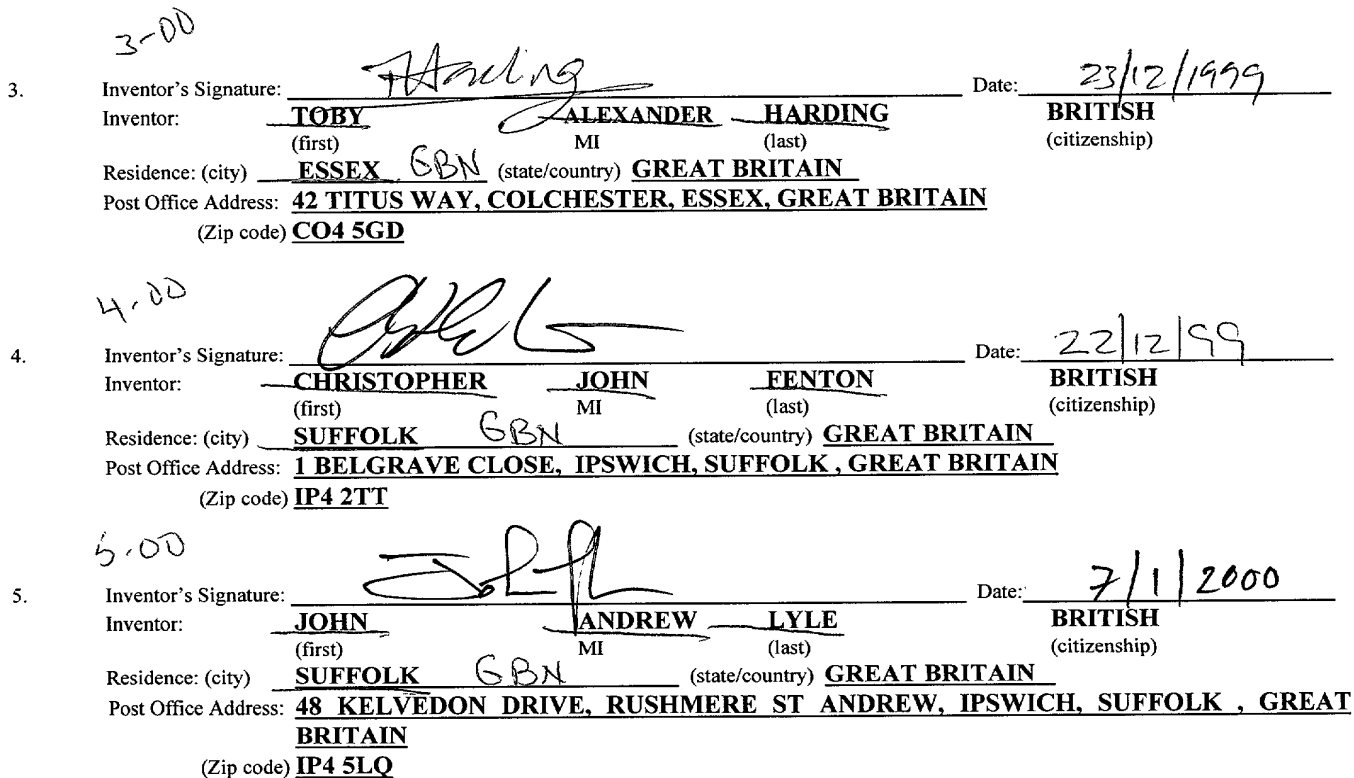 3-00
3. Inventor's Signature: THarding Date: 23/12/1999
Inventor: TOBY ALEXANDER HARDING BRITISH
(first) MI (last) (citizenship)
Residence: (city) ESSEX GBN (state/country) GREAT BRITAIN
Post Office Address: 42 TITUS WAY, COLCHESTER, ESSEX, GREAT BRITAIN
(Zip code) CO4 5GD
4-00
4. Inventor's Signature: Date: 22/12/99
Inventor: CHRISTOPHER JOHN FENTON BRITISH
(first) MI (last) (citizenship)
Residence: (city) SUFFOLK GBN (state/country) GREAT BRITAIN
Post Office Address: 1 BELGRAVE CLOSE, IPSWICH, SUFFOLK , GREAT BRITAIN
(Zip code) IP4 2TT
5-00
5. Inventor's Signature: Date: 7/1/2000
Inventor: JOHN ANDREW LYLE BRITISH
(first) MI (last) (citizenship)
Residence: (city) SUFFOLK GBN (state/country) GREAT BRITAIN
Post Office Address: 48 KELVEDON DRIVE, RUSHMERE ST ANDREW, IPSWICH, SUFFOLK , GREAT
BRITAIN
(Zip code) IP4 5LQ